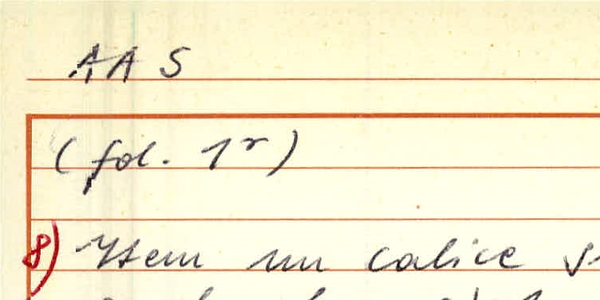 AAS
(fol. 1r)
8) Item un calice